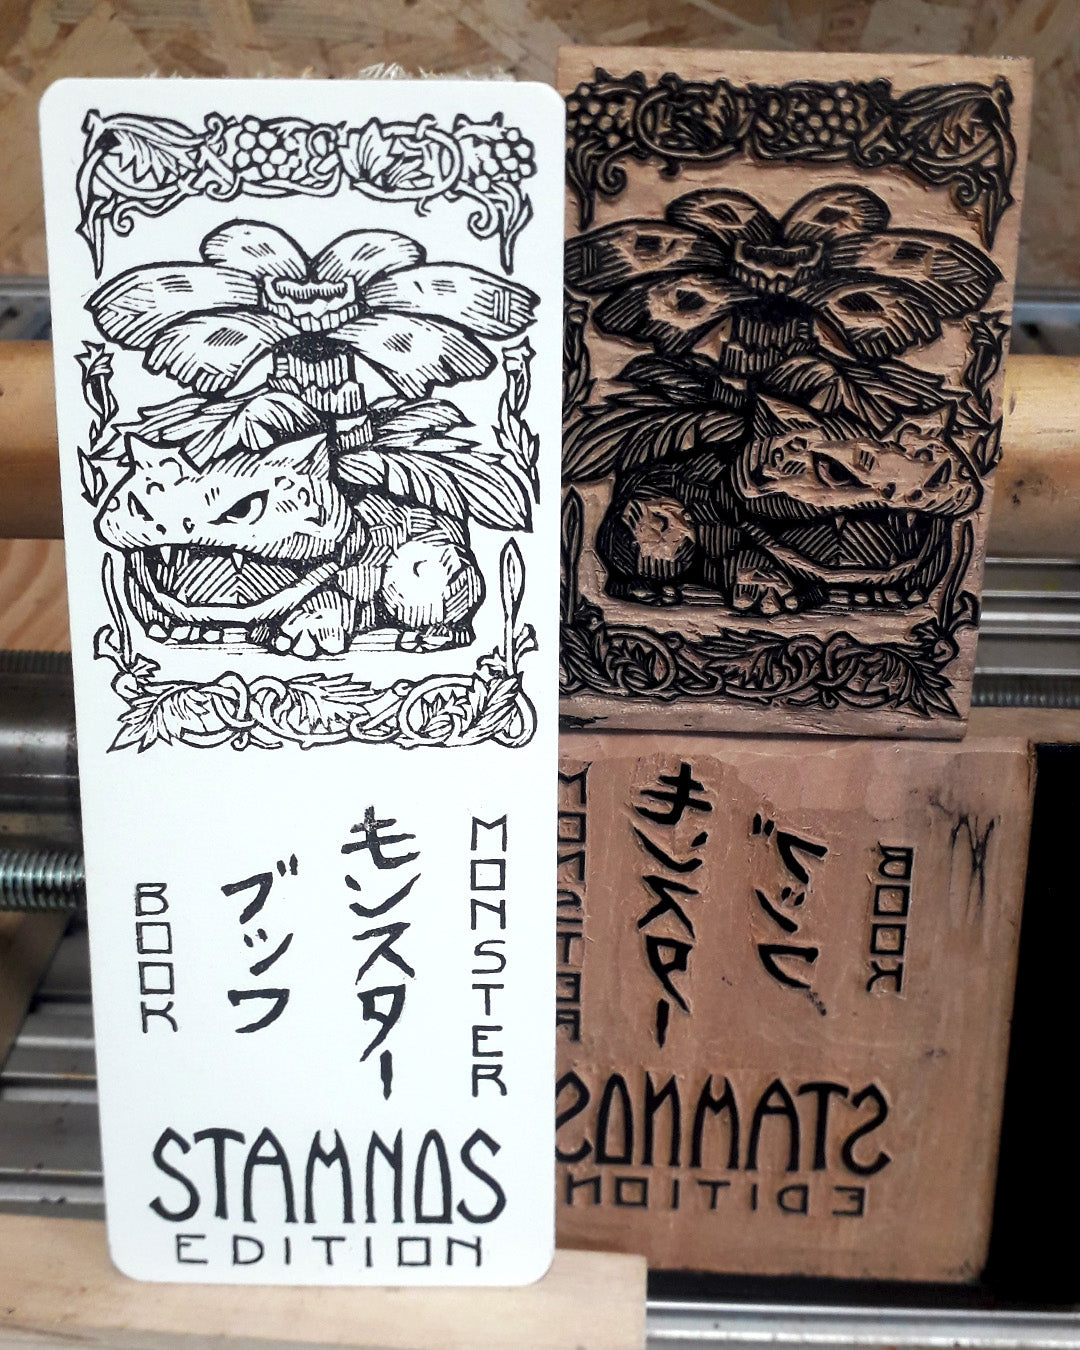 MONSTER
モンスター
ブック
BOOK
STAMNOS
EDITION
MONSTER
モンスター
ブック
BOOK
STAMNOS
EDITION